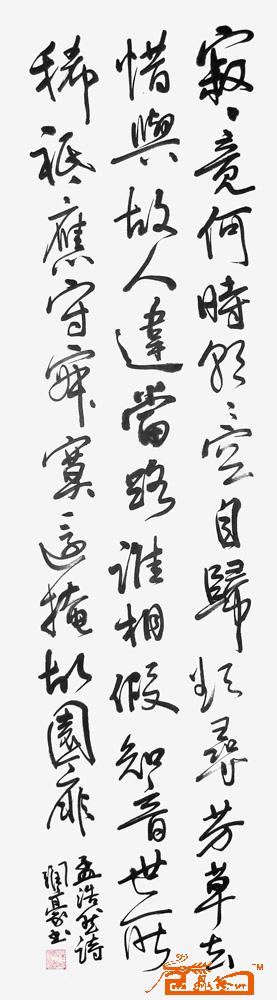 寂〻竟何時朝〻空自歸欲尋芳草去
惜與故人違當路誰相假知音世所
稀祗應守寂寞還掩故園扉
孟浩然詩
书